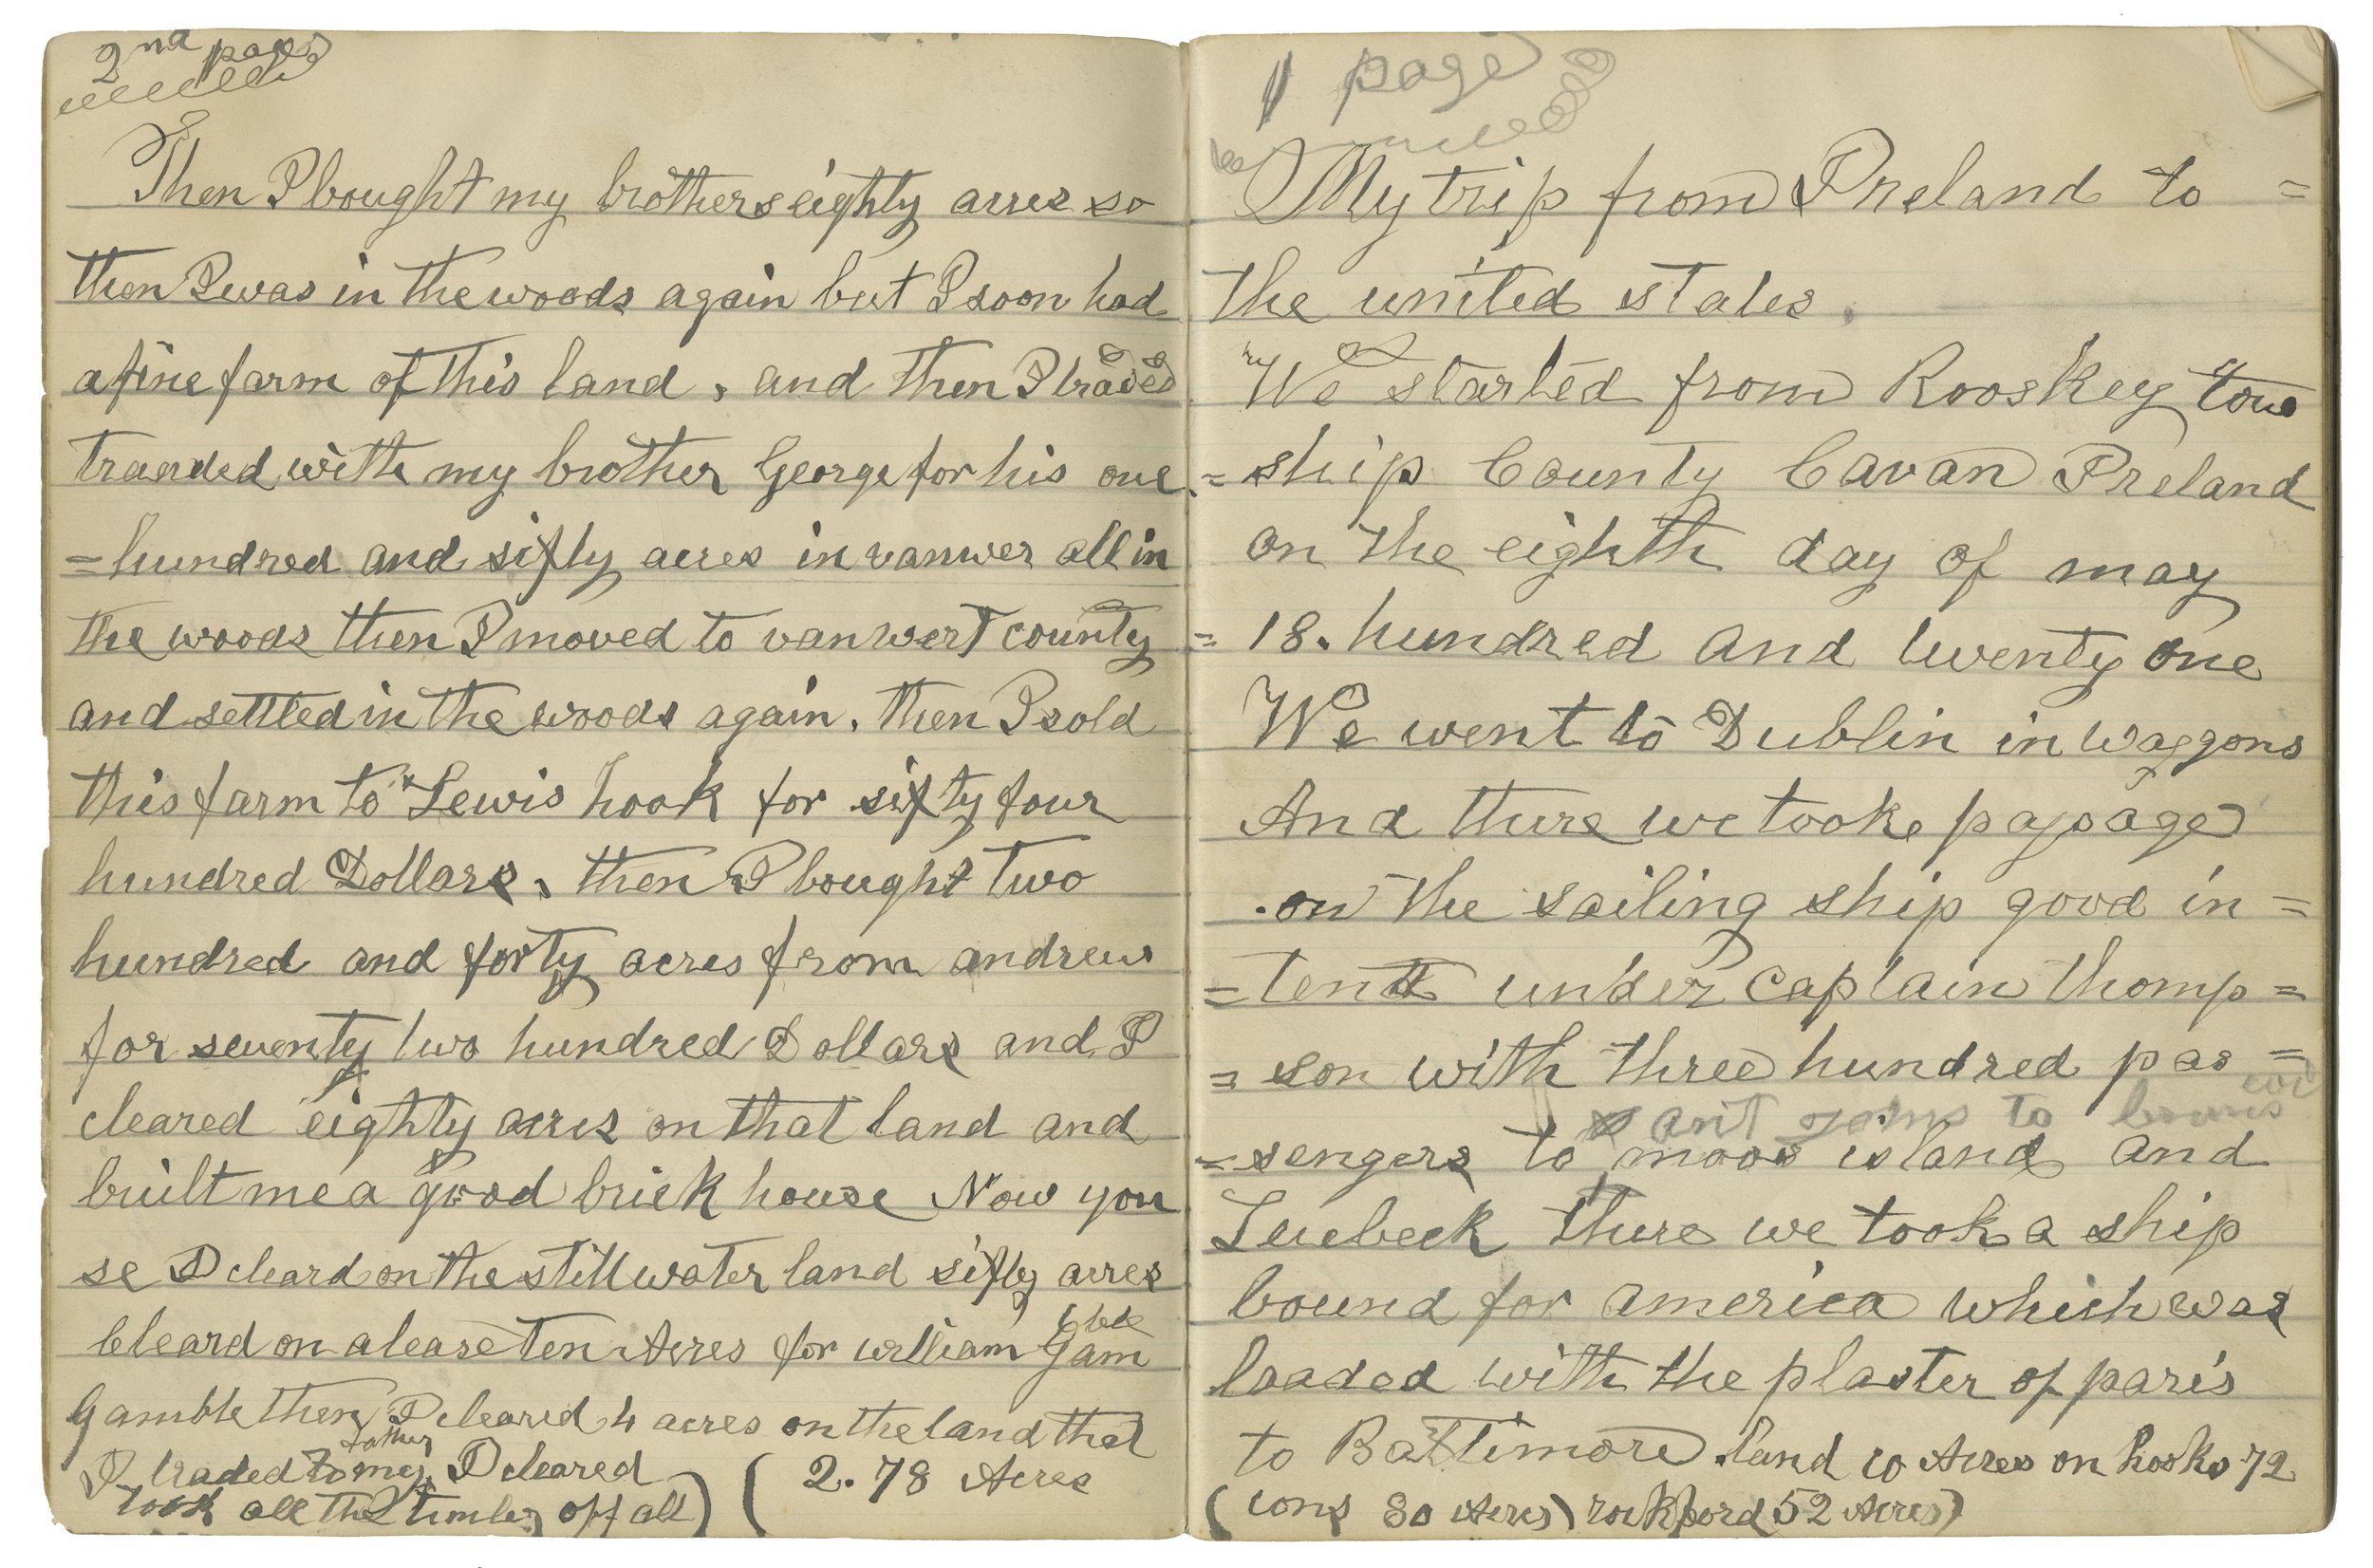 2nd page
Then I bought my brothers eighty acres so
then I was in the woods again but I soon had
a fine farm of this land, and then I traded
traeded with my brother George for his one
=hundred and sixty acres in vanwer all in
the woods then I moved to vanwert county
and settled in the woods again. then I sold
this farm to Lewis hook for sixty four
hundred Dollars, then I bought two
hundred and forty acres from andrew
for seventy two hundred Dollars and I
cleared eighty acres on that land and
built me a good brick house Now you
se I cleard on the still water land sixty acres
Cleard on a lease ten Acres for william Gam
Gamble then I cleared 4 acres on the land that
I traded to my father I cleared
took all the timber off all) (2.78 Acres
1 page
My trip from Ireland to =
the united states.
We started from Rooskey town
=ship County Cavan Ireland
on the eighth day of may
= 18. hundred and twenty one
We went to Dublin in waggons
And there we tooke passage
.on the sailing ship good in =
=tent under captain thomp =
= son with three hundred pas =
ant going to
=sengers to moos island and
Luebeck there we took a ship
bound for america which was
loaded with the plaster of paris
to Baltimore. land 10 Acres on hooks 72
(cons 80 Acres) rockford 52 Acres)